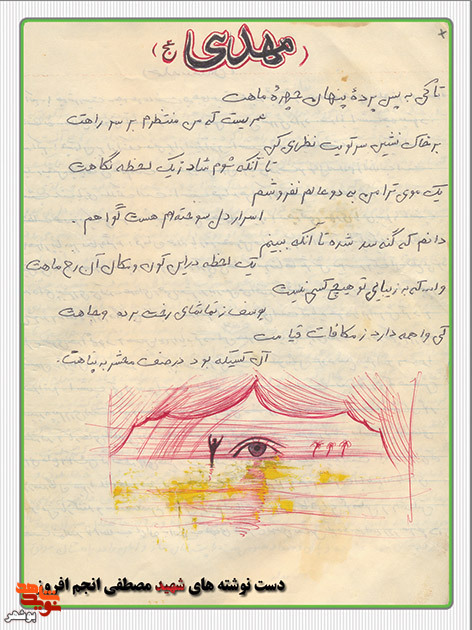 مهدی (عج)
تا کی به پس پردهٔ پنهان چهرهٔ ماهت
عمریست که من منتظرم بر سر راهت
بر خاک نشین سر کویت نظری کن
تا آنکه شوم شاد ز یک لحظه نگاهت
یک موی ترا من به دو عالم نفروشم
اسرار دل سوخته‌ام هست گواهم.
دانم که گنه سد شده تا آنکه ببینم
یک لحظه در این کون و مکان آن رخ ماهت
والله که به زیبایی تو هیچ کسی نیست
یوسف ز تماشای رخت برده وجاهت
کی واهمه دارد ز مکافات قیامت
آن کسیکه بود در صف محشر به پناهت.
دست نوشته های شهید مصطفی انجم افروز
نوید شاهد
بوشهر